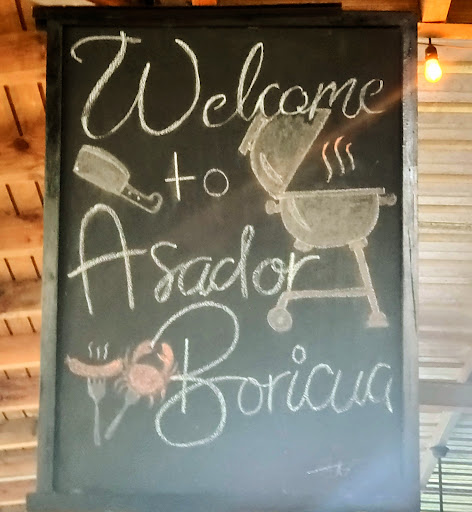 Welcome
to
Asador
Boricua